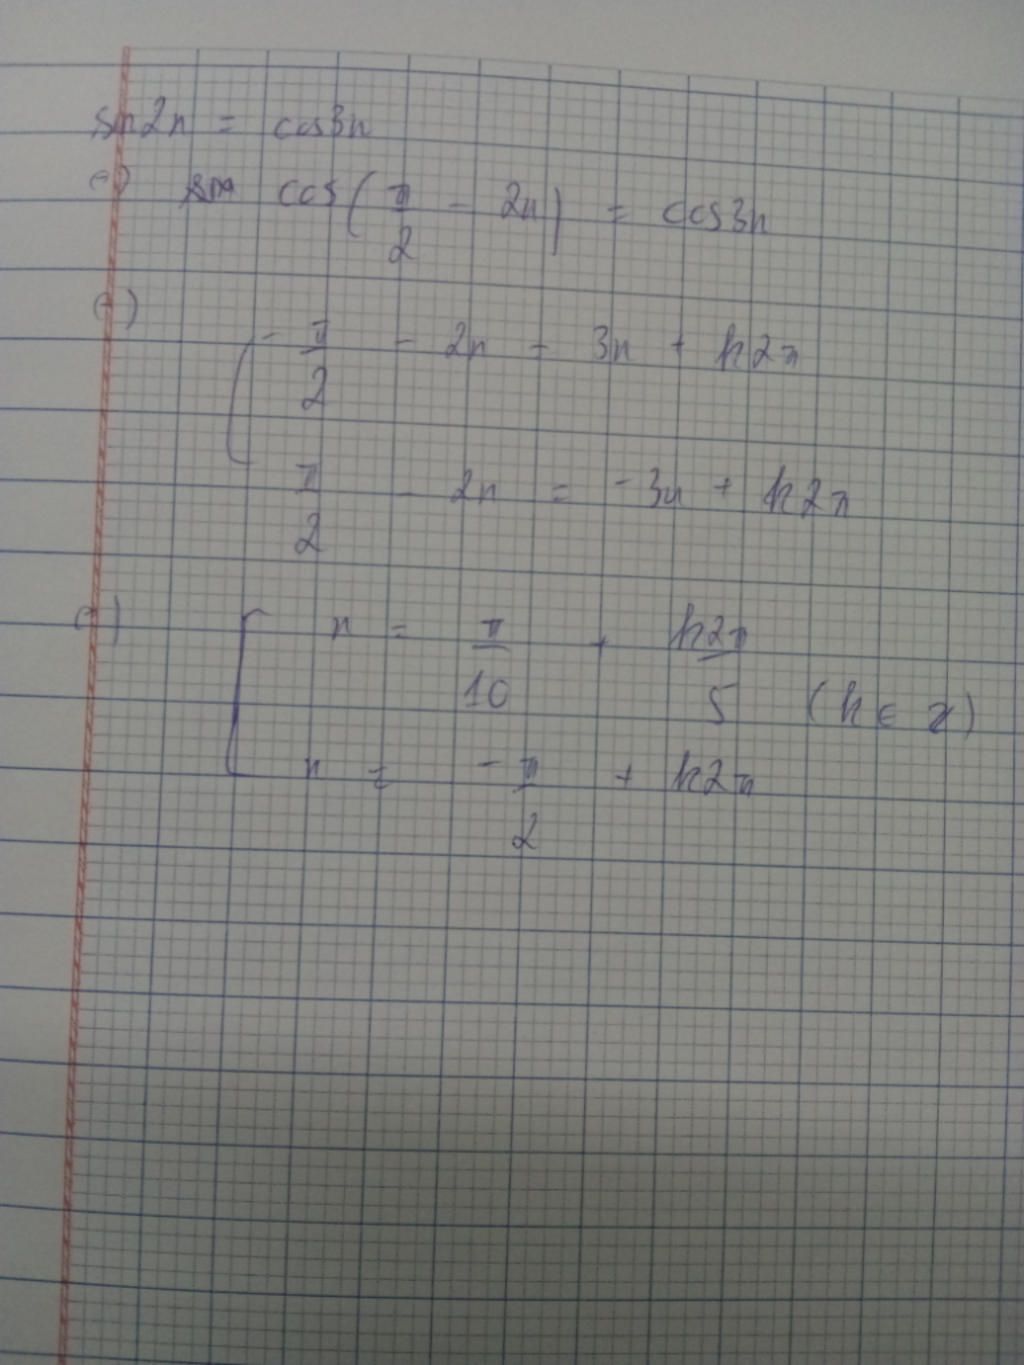 sin2x = cos3x
<=> cos(π/2 - 2x) = cos3x
<=>
[ π/2 - 2x = 3x + k2π
π/2 - 2x = -3x + k2π
<=> [ x = π/10 + k2π/5 (k ∈ Z)
x = -π/2 + k2π